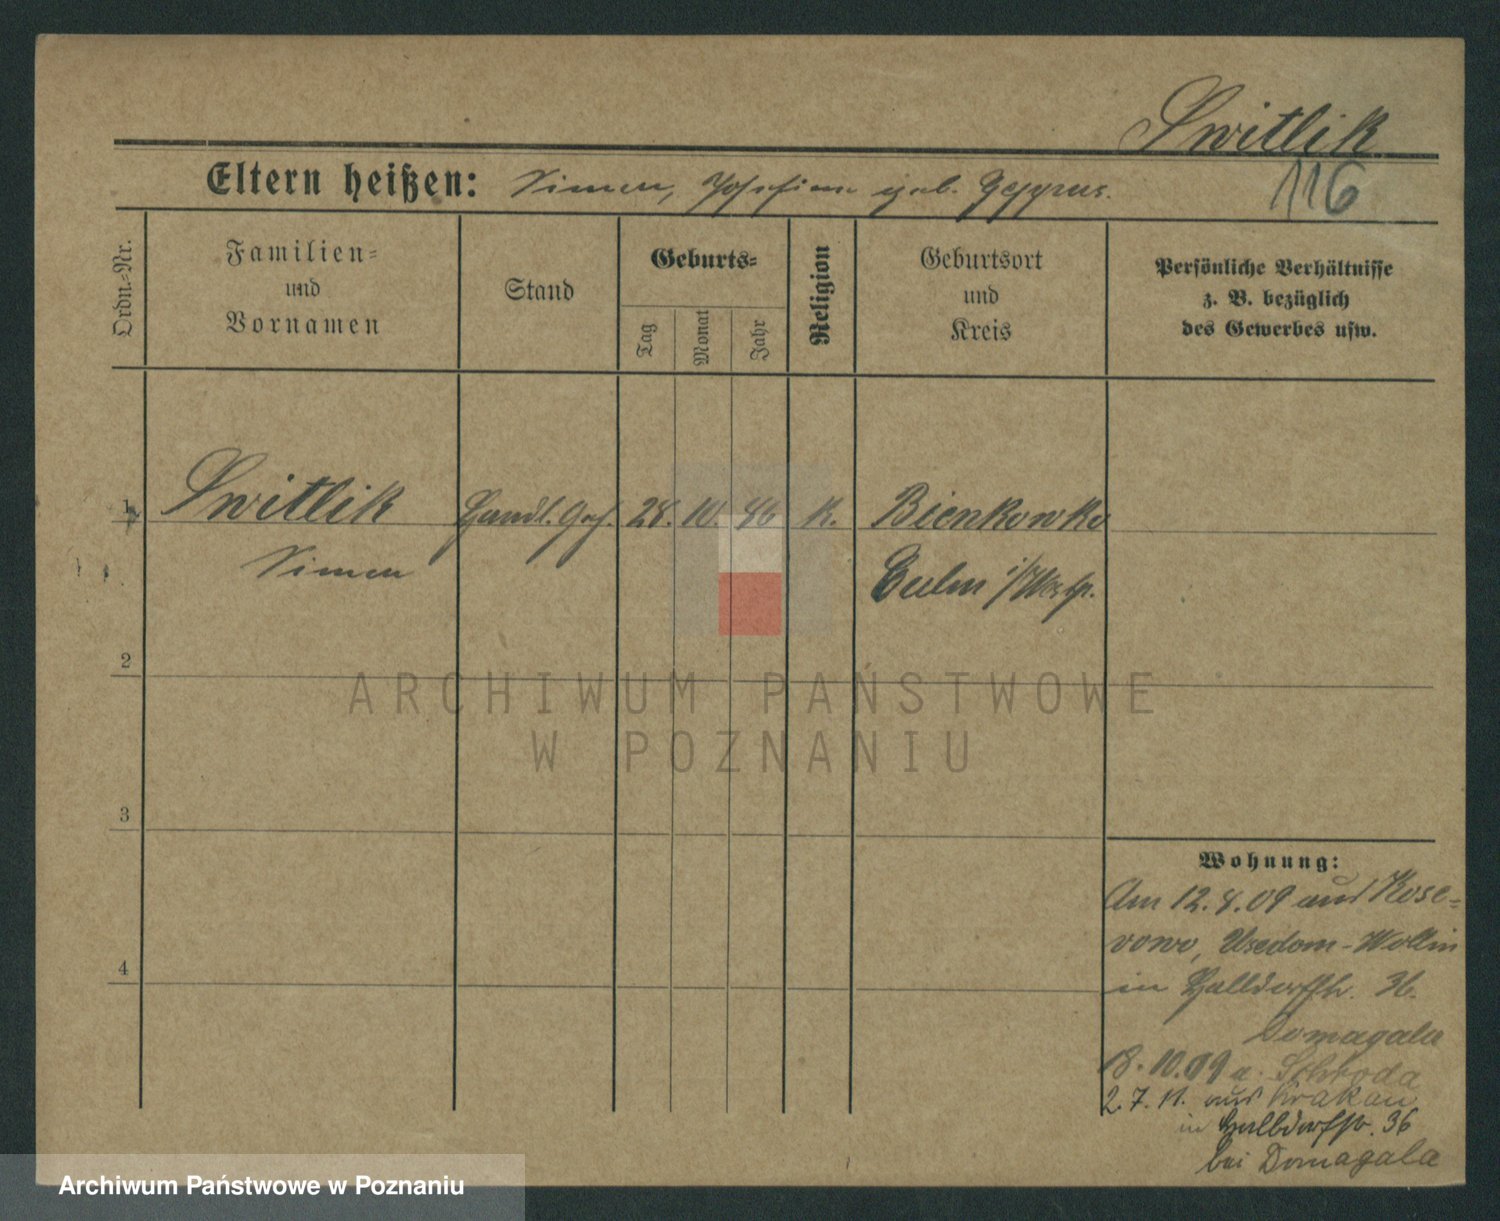 Switlik
Eltern heißen: Simon, Josefine geb. 
116
Ordn.-Nr.
Familien-
und
Vornamen
Stand
Geburts-
Tag
Monat
Jahr
Religion
Geburtsort
und
Kreis
Persönliche Verhältnisse
z. B. bezüglich
des Gewerbes usw.
1 Switlik Handl. Geh. 28. 10. 86 K. Bienkowko
Simon Culm i/Westp.
2
3
4
Wohnung:
Am 12.8.09 aus Kose-
rowo, Usedom-Wollin
in Halldorfstr. 36.
Domagala
18.10.09 n. Schroda
2.7.11. aus Krakau
in Halbdorfstr. 36
bei Domagala
ARCHIWUM PAŃSTWOWE
W POZNANIU
Archiwum Państwowe w Poznaniu